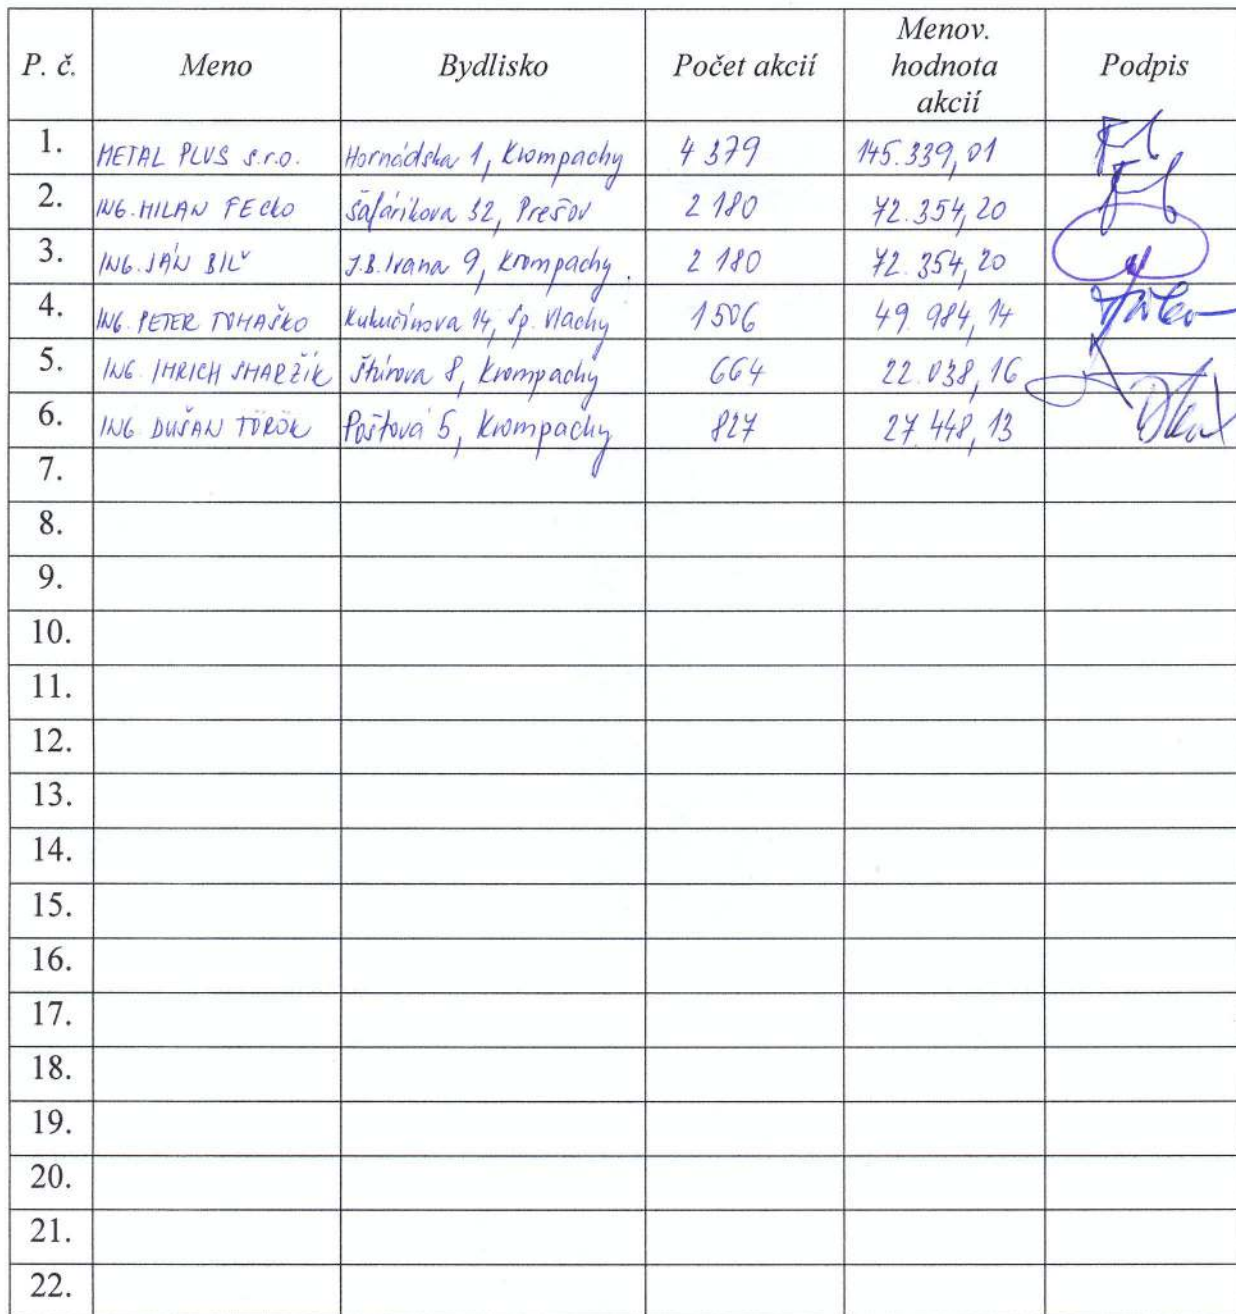 P. č. Meno Bydlisko Počet akcií Menov. hodnota akcií Podpis
1. METAL PLUS s.r.o. Hornádska 1, Krompachy 4 379 145.339,01
2. ING. MILAN FECKO Šafárikova 32, Prešov 2 180 72.354,20
3. ING. JÁN BILÝ J.B. Ivana 9, Krompachy 2 180 72.354,20
4. ING. PETER TOMAŠKO Kukučínova 14, Sp. Vlachy 1506 49.984,14
5. ING. IMRICH SMARŽÍK Štúrova 8, Krompachy 664 22.038,16
6. ING DUŠAN TÖRÖK Poštová 5, Krompachy 827 27.448,13
7.
8.
9.
10.
11.
12.
13.
14.
15.
16.
17.
18.
19.
20.
21.
22.